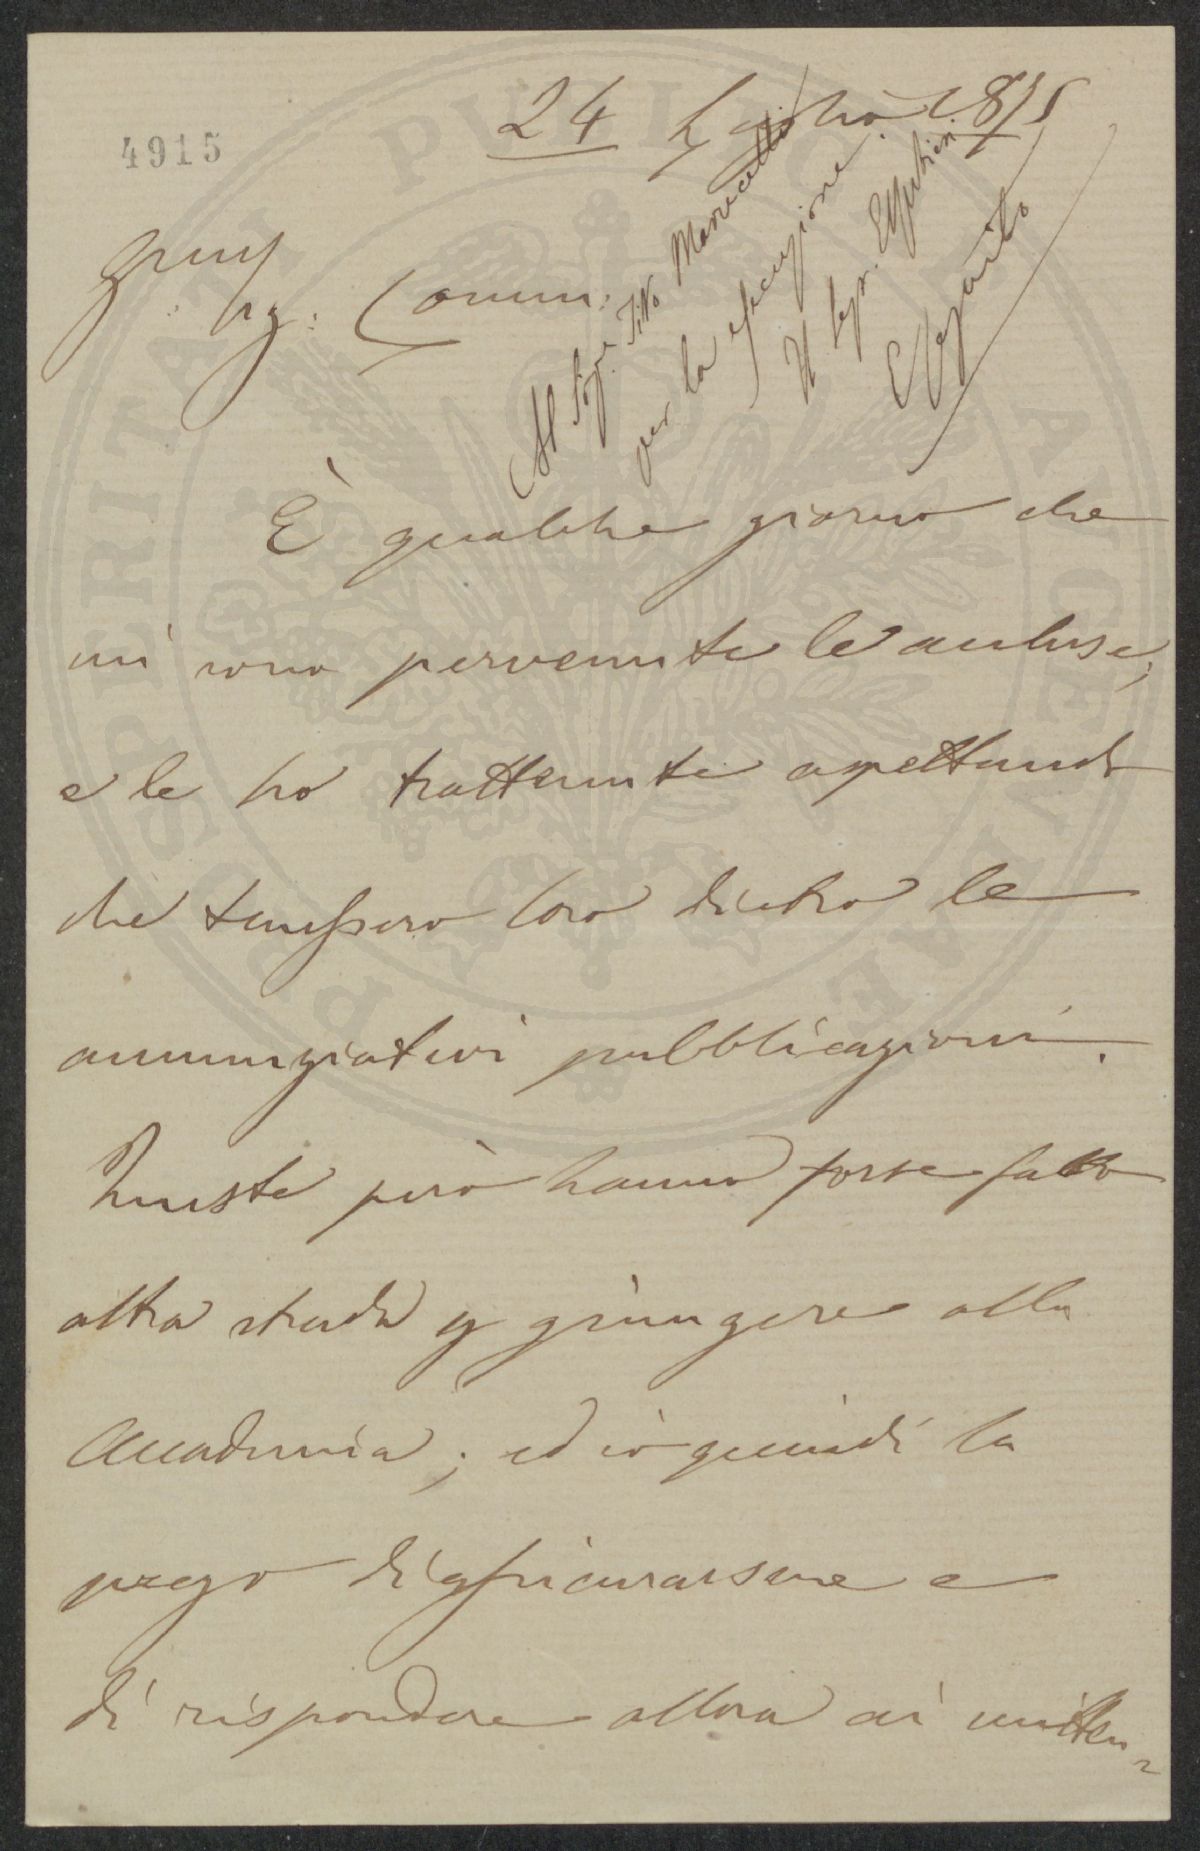 4915
24 Luglio 1875
Sig: Comm:
Al Sigr. Tito Marucelli
per la esecuzione.
Il Segr.
È qualche giorno che
mi sono pervenute le accluse,
e le ho trattenute aspettando
che tenessero loro dietro le
annunziatevi pubblicazioni.
Queste però hanno forse fatto
altra strada p giungere alla
Accademia; ed io quindi la
prego di assicurarsene e
di rispondere allora ai mitten=